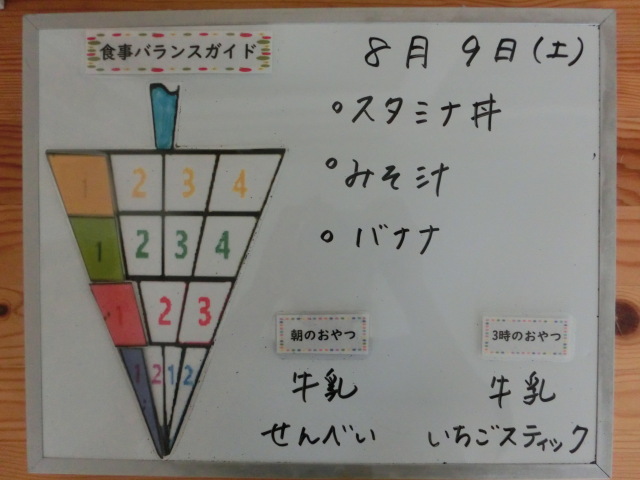 食事バランスガイド
8月 9日(土)
。スタミナ丼
。みそ汁
。バナナ
1 2 3 4
1 2 3 4
1 2 3
1 2 1 2
朝のおやつ
牛乳
せんべい
3時のおやつ
牛乳
いちごスティック